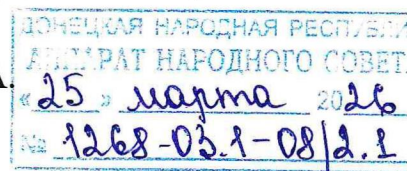 ДОНЕЦКАЯ НАРОДНАЯ РЕСПУБЛИ
АППАРАТ НАРОДНОГО СОВЕТ
«25» марта 2026
№ 1268-03.1-08/2.1